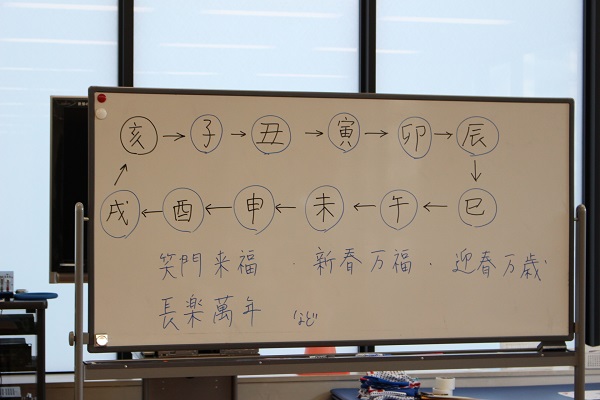 亥 → 子 → 丑 → 寅 → 卯 → 辰
戌 ← 酉 ← 申 ← 未 ← 午 ← 巳
笑門来福 ・ 新春万福 ・ 迎春万歳・
長楽萬年 など